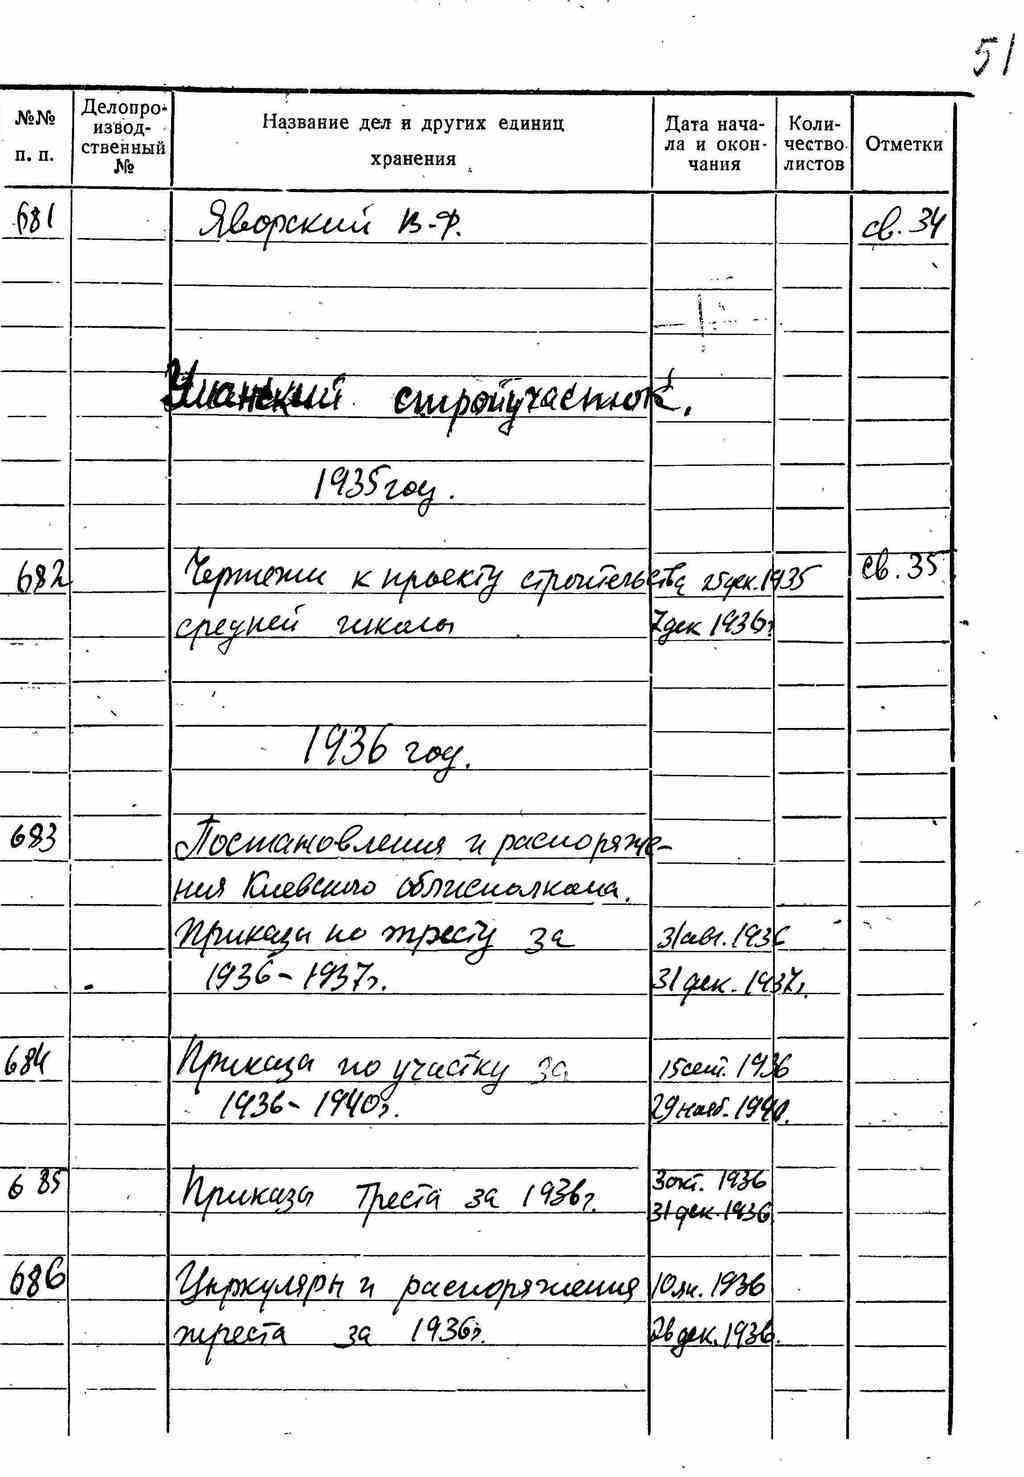 51
№№ п. п.
Делопроизвод-ственный №
Название дел и других единиц хранения
Дата нача-ла и окон-чания
Коли-чество листов
Отметки
681 Яворский В.Ф. св. 34
Уманский стройучасток.
1935 год.
682 Чертежи к проекту строительства 25 дек. 1935 св. 35
средней школы 7 дек 1936г
1936 год.
683 Постановления и распоряже-
ния Киевского облисполкома.
Приказы по тресту за 31 авг. 1936
1936-1937г. 31 дек. 1937г.
684 Приказы по участку за 15 сент. 1936
1936-1940г. 29 нояб. 1940.
685 Приказы треста за 1936г. 3 окт. 1936
31 дек. 1936
686 Циркуляры и распоряжения 10 ян. 1936
треста за 1936г. 26 дек. 1936.